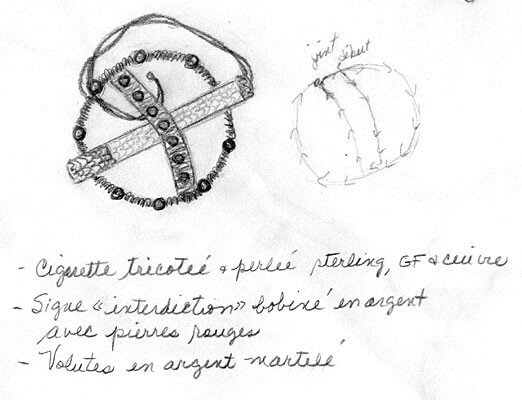 joint
début
- Cigarette tricoteé & perleé sterling, GF & cuivre
- Signe «interdiction» bobiné en argent
avec pierres rouges
- Volutes en argent martelé